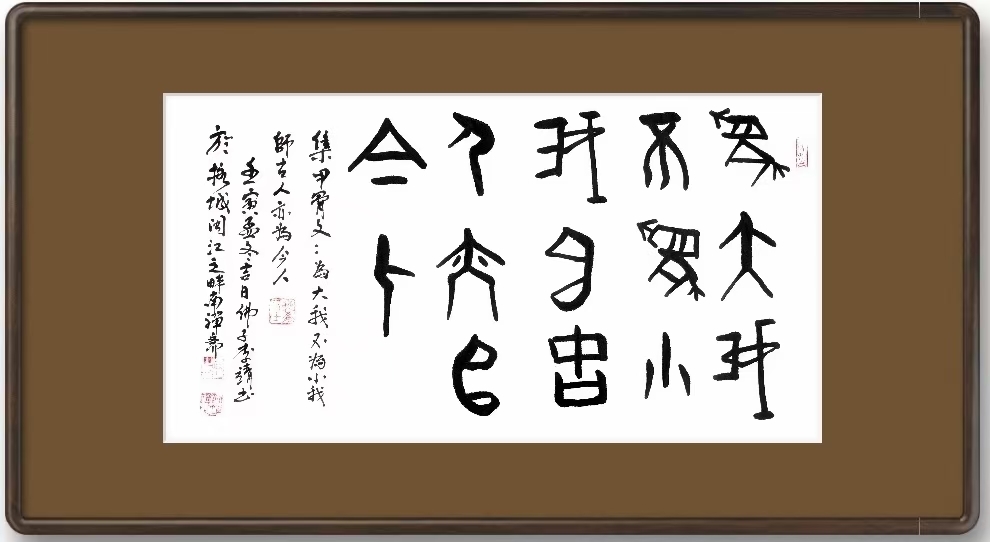 為大我
不為小
我師古
人亦
今人
集甲骨文：為大我不為小我
師古人亦為今人
壬寅孟冬吉日佛子李靖书
於榕城闽江之畔南禅斋